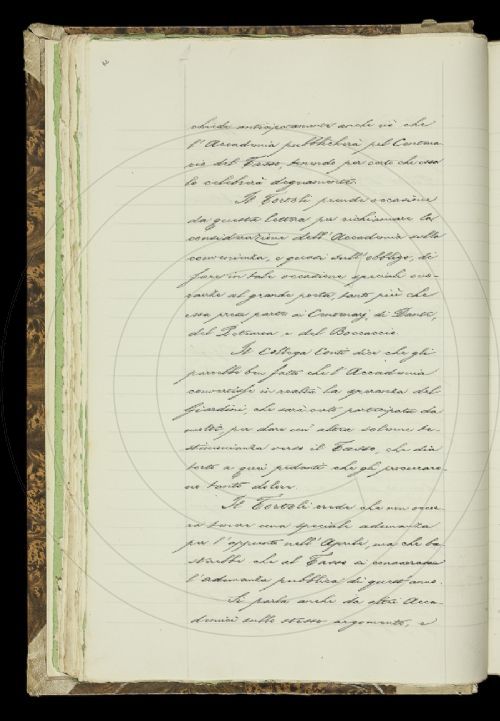 chiede anticipatamente anche ciò che
l'Accademia pubblicherà pel Centena-
rio del Tasso, tenendo per certo che essa
lo celebrerà degnamente.
Il Tortoli prende occasione
da questa lettera per richiamare la
considerazione dell'Accademia sulla
convenienza, e quasi sull'obbligo, di
fare in tale occasione speciali ono-
ranze al grande poeta, tanto più che
essa prese parte ai Centenarj di Dante,
del Petrarca e del Boccaccio.
Il Collega Conti dice che gli
parrebbe ben fatto che l'Accademia
convertisse in realtà la speranza del
che sarà certo partecipata da
molti per dare un'altra solenne te-
stimonianza verso il Tasso, che dia
torto a quei pedanti che gli procuraro-
no tanto dolore.
Il Tortoli crede che non occor-
ra tenere una speciale adunanza
per l'appunto nell'Aprile, ma che ba-
sterebbe che al Tasso si consacrasse
l'adunanza pubblica di quest'anno.
Si parla anche da altri Acca-
demici sullo stesso argomento, e